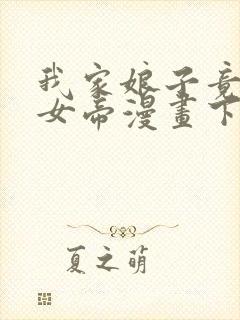 我家娘子竟
女帝漫畫下
夏之萌